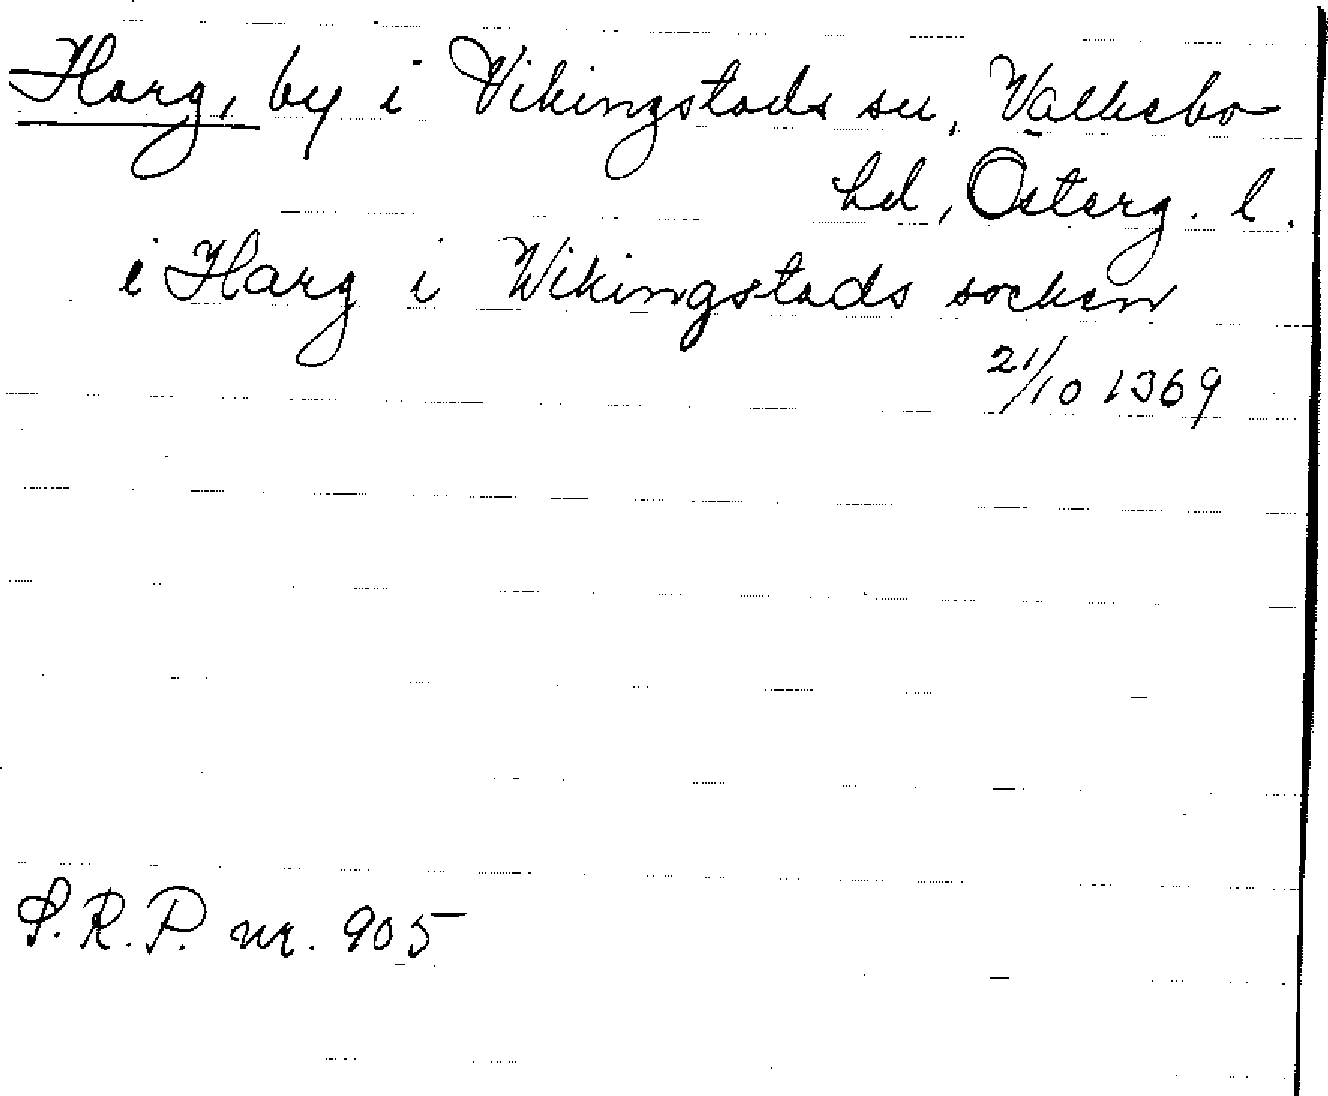 Harg, by i Vikingstads sn, Valkebo
hd, Österg. l.
i Harg i Wikingstads socken
21/10 1369
S.R.P. nr. 905